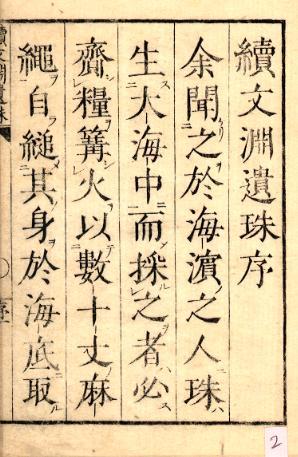 續文淵遺珠序
余聞之於海濱之人珠
生大海中而採之者必
齎糧篝火以數十丈麻
繩自縋其身於海底取
續文淵遺珠
序
2